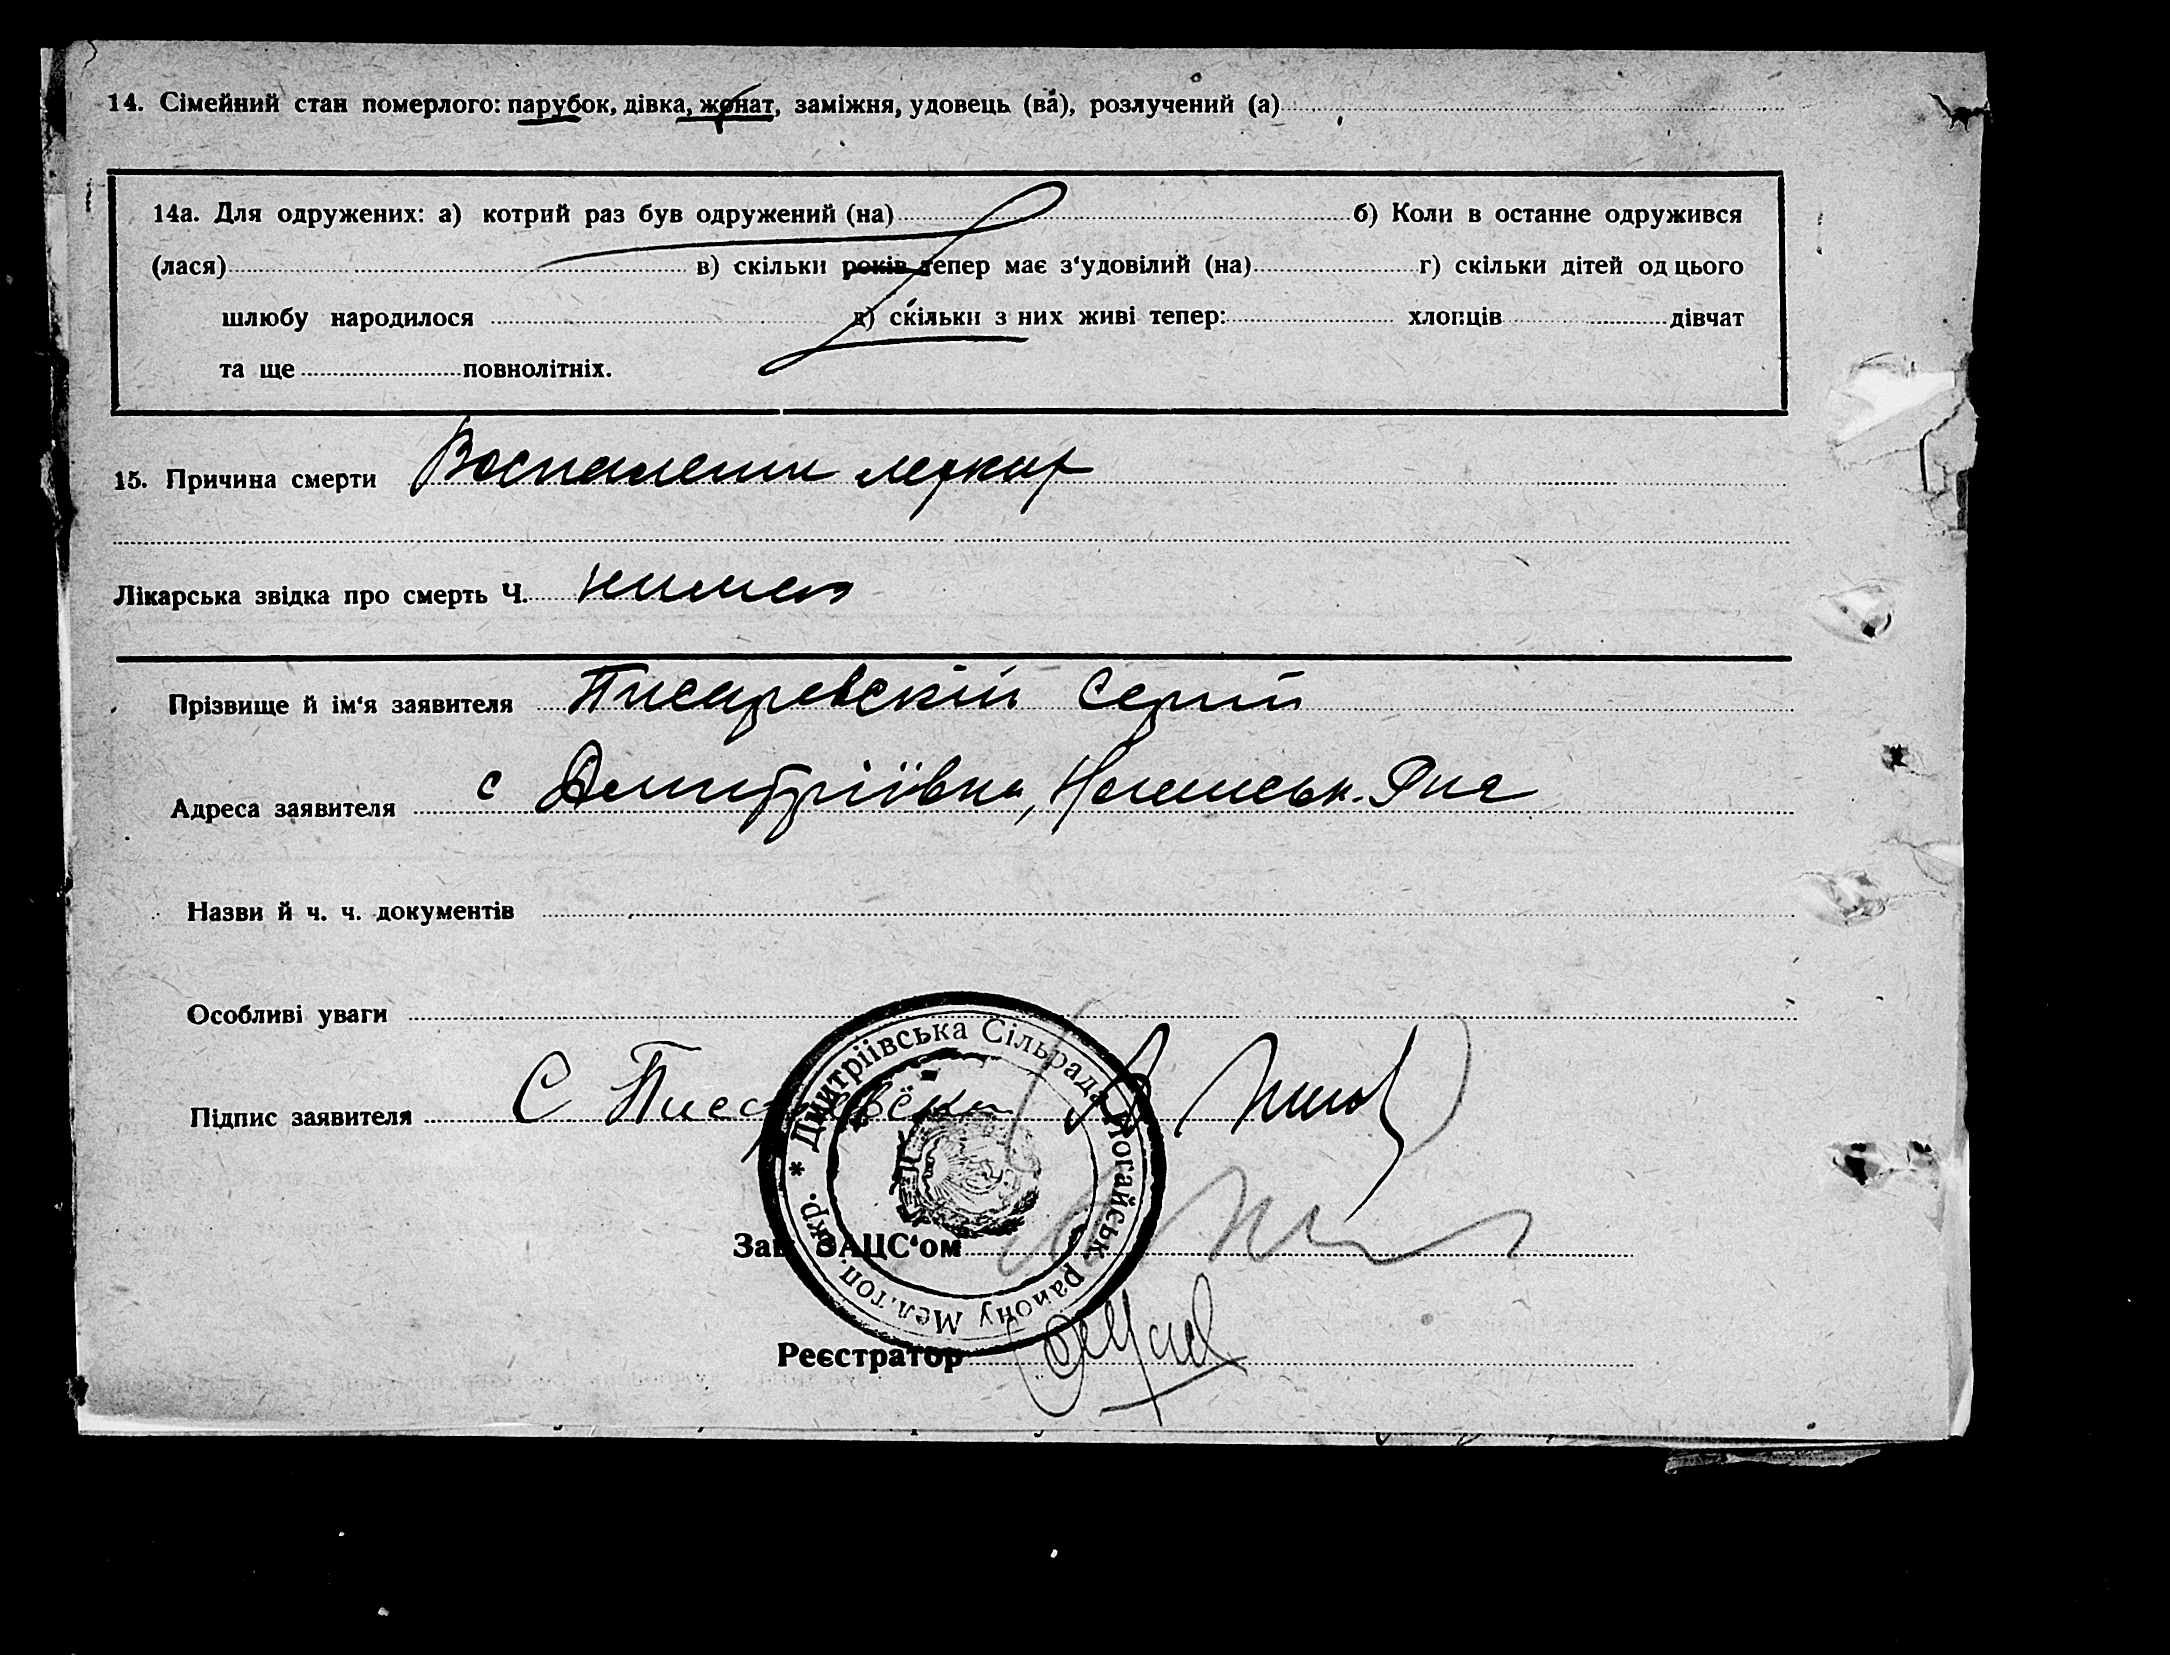 14. Сімейний стан померлого: парубок, дівка, жонат, заміжня, удовець (ва), розлучений (а)
14а. Для одружених: а) котрий раз був одружений (на) б) Коли в останне одружився
(лася) в) скільки років тепер має з‘удовілий (на) г) скільки дітей од цього
шлюбу народилося д) скільки з них живі тепер: хлопців дівчат
та ще повнолітніх.
15. Причина смерти Воспалении легких
Лікарська звідка про смерть Ч. нимае
Прізвище й ім‘я заявителя Писаревский Сергий
Адреса заявителя с Дмитріївка,
Назви й ч. ч. документів
Особливі уваги
Підпис заявителя С
* Дмитріївська Сільрада Ногайськ. району Мел.топ. окр.
Зав. ЗАЦС‘ом
Реєстратор